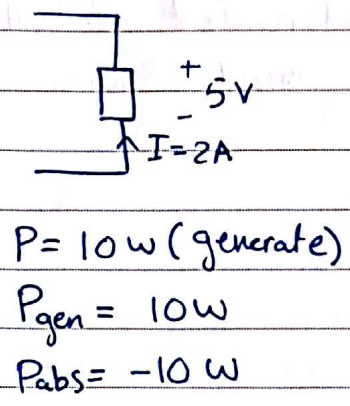 +
5V
-
I=2A
P= 10w (generate)
Pgen = 10w
Pabs= -10 w